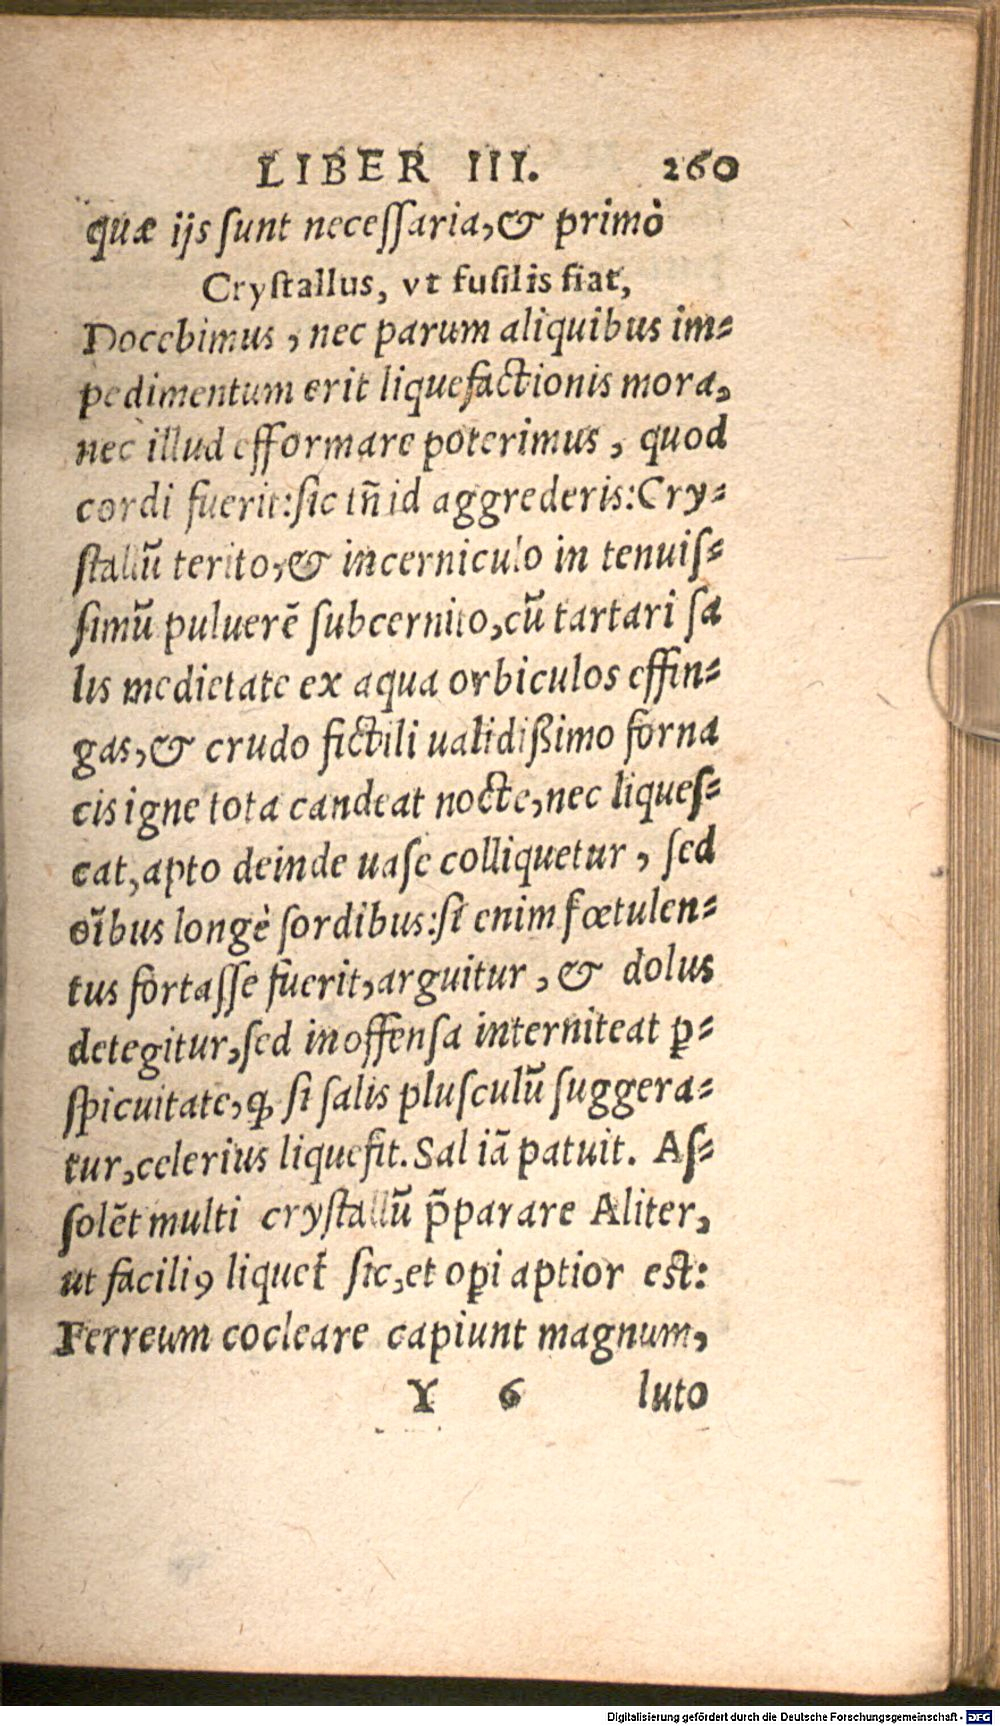 LIBER III. 260
quæ ijs sunt necessaria, & primò
Crystallus, vt fusilis fiat,
Docebimus, nec parum aliquibus im-
pedimentum erit liquefactionis mora,
nec illud efformare poterimus, quod
cordi fuerit: sic tñ id aggrederis: Cry-
stallū terito, & incerniculo in tenuis-
simū puluerē subcernito, cū tartari sa
lis medietate ex aqua orbiculos effin-
gas, & crudo fictili ualidißimo forna
cis igne tota candeat nocte, nec liques-
cat, apto deinde uase colliquetur, sed
oībus longè sordibus: si enim fœtulen-
tus fortasse fuerit, arguitur, & dolus
detegitur, sed inoffensa interniteat ꝑ-
spicuitate, ꝙ si salis plusculū suggera-
tur, celerius liquefit. Sal iā patuit. As-
solēt multi crystallū p̄parare Aliter,
ut faciliꝰ liquet̄ sic, et oꝑi aptior est:
Ferreum cocleare capiunt magnum,
Y 6 luto
Digitalisierung gefördert durch die Deutsche Forschungsgemeinschaft - DFG